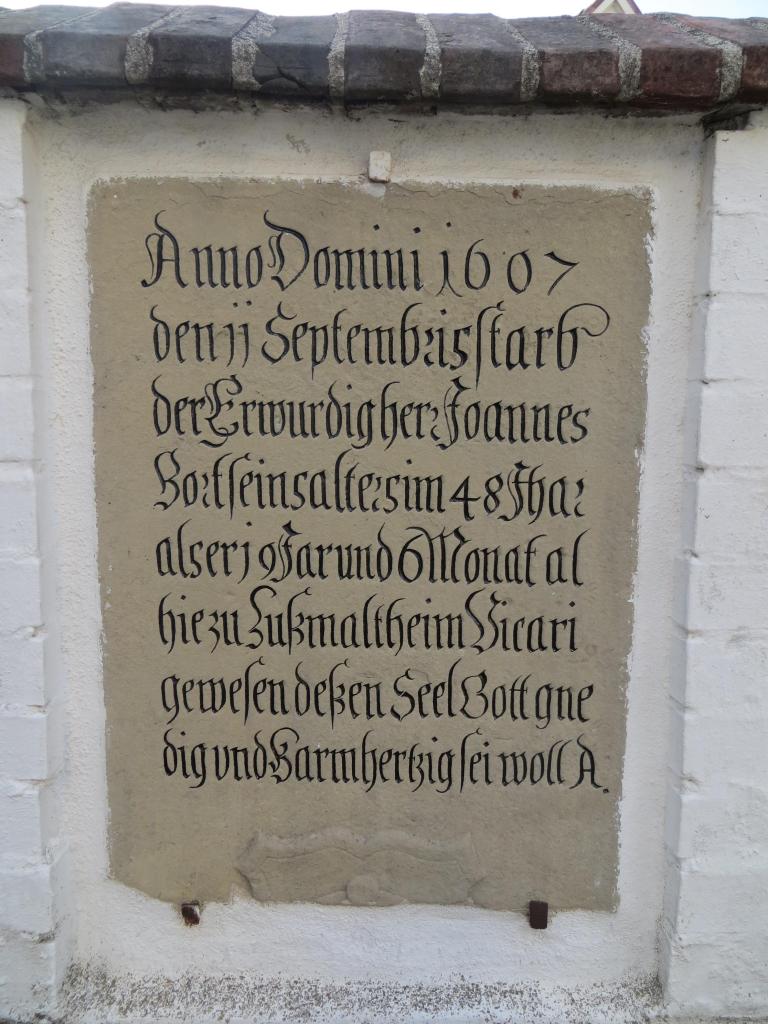 Anno Domini 1607
den jj Septembris starb
der Erwurdig her Joannes
Bort seins alters im 48 Jhar
als er j9 Jar und 6 Monat al
hie zu Lußmaltheim Vicari
gewesen deßen Seel Gott gne
dig vnd Barmhertzig sei woll A.